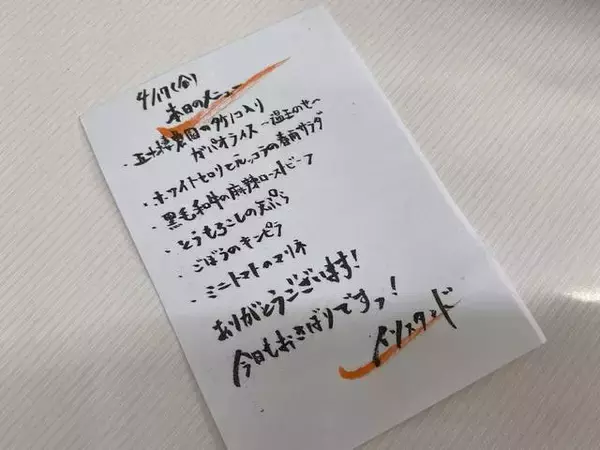 4/17(金)
本日のメニュー
・五十棲農園のタケノコ入り
ガパオライス 〜温玉のせ〜
・ホワイトセロリとルッコラの春雨サラダ
・黒毛和牛の麻辣ローストビーフ
・とうもろこしの天ぷら
・ごぼうのキンピラ
・ミニトマトのマリネ
ありがとうございます!
今日もおきばりですっ!